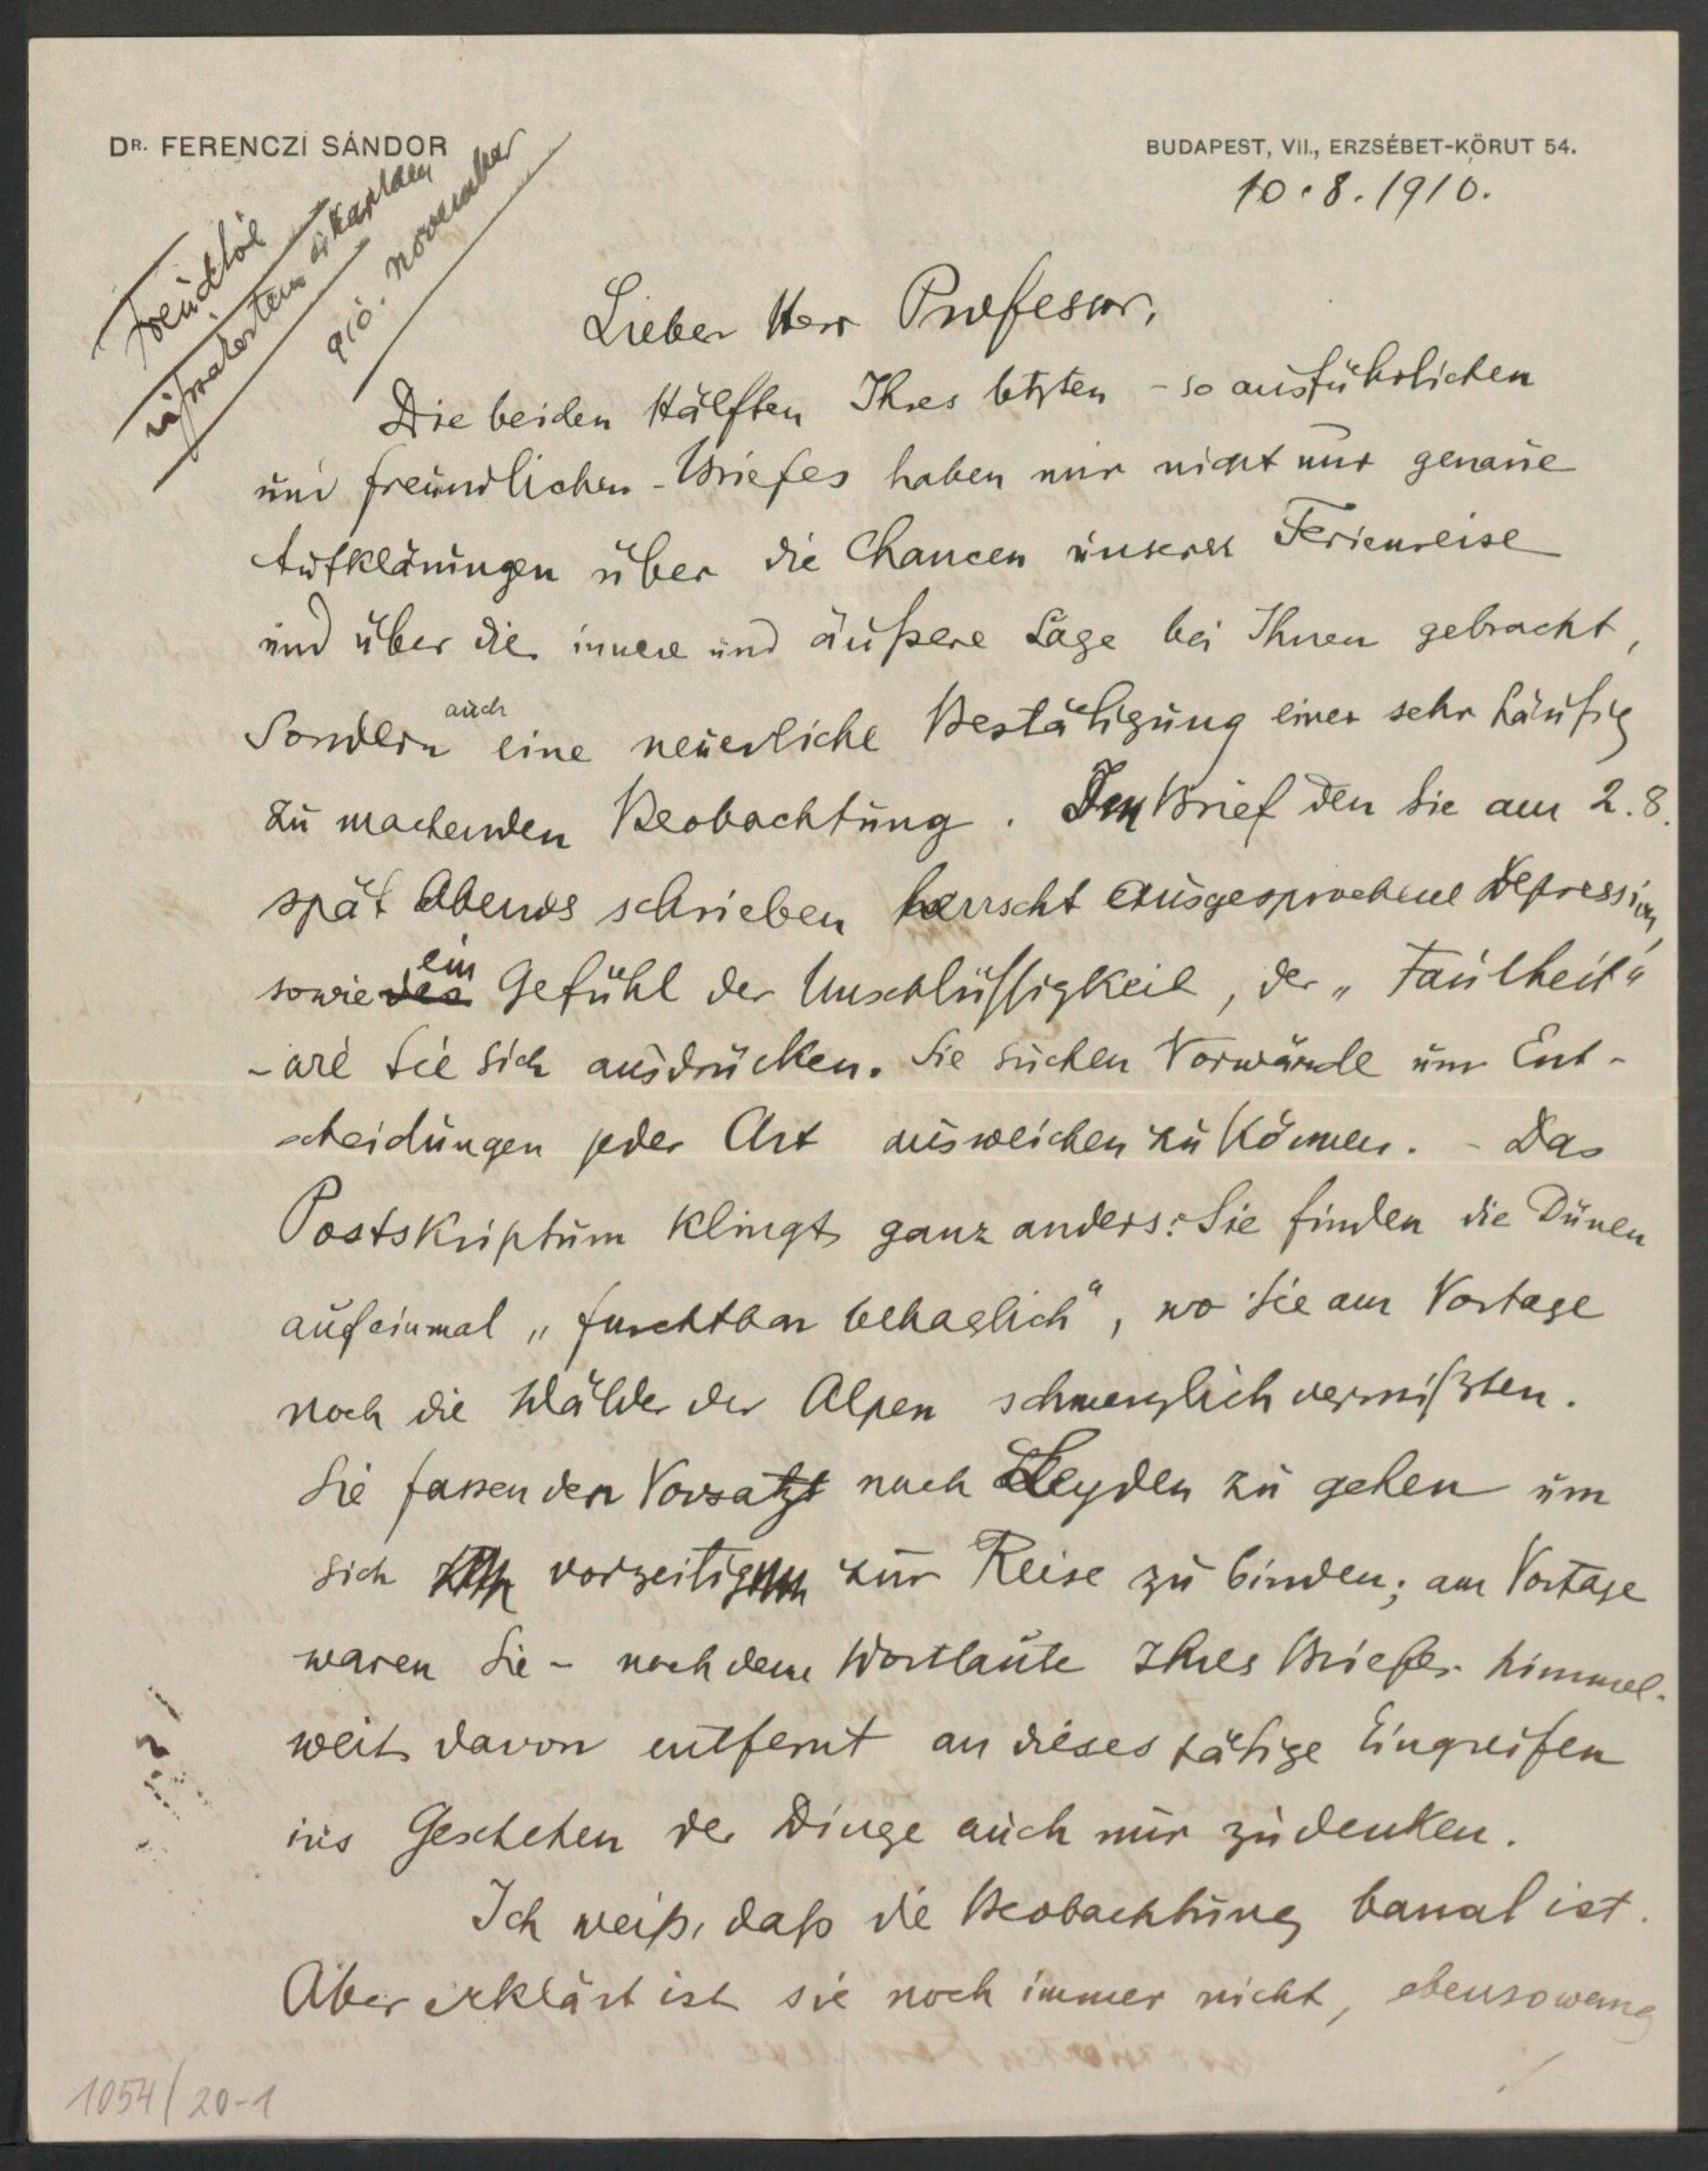 DR. FERENCZI SÁNDOR
BUDAPEST, VII., ERZSÉBET-KÖRUT 54.
10.8.1910.
Freudtól
910. november
Lieber Herr Professor,
Die beiden Hälften Ihres letzten - so ausführlichen
und freundlichen - Briefes haben mir nicht nur genaue
Aufklärungen über die Chancen unserer Ferienreise
und über die innere und äußere Lage bei Ihnen gebracht,
sondern auch eine neuerliche Bestätigung einer sehr häufig
zu machenden Beobachtung. Im Brief den Sie am 2.8.
spät Abends schrieben herrscht ausgesprochene Depression,
sowie ein Gefühl der Unschlüssigkeit, der „Faulheit"
- wie Sie sich ausdrücken. Sie suchen Vorwände um Ent-
scheidungen jeder Art ausweichen zu können. - Das
Postskriptum klingt ganz anders: Sie finden die Dünen
auf einmal „furchtbar behaglich", wo Sie am Vortage
noch die Wälder der Alpen schmerzlich vermißten.
Sie fassen den Vorsatz nach Leyden zu gehen um
sich vorzeitig zur Reise zu binden; am Vortage
waren Sie - nach dem Wortlaute Ihres Briefes himmel-
weit davon entfernt an dieses tätige Eingreifen
ins Geschehen der Dinge auch nur zu denken.
Ich weiß, daß die Beobachtung banal ist.
Aber erklärt ist sie noch immer nicht, ebensowenig
1054/20-1